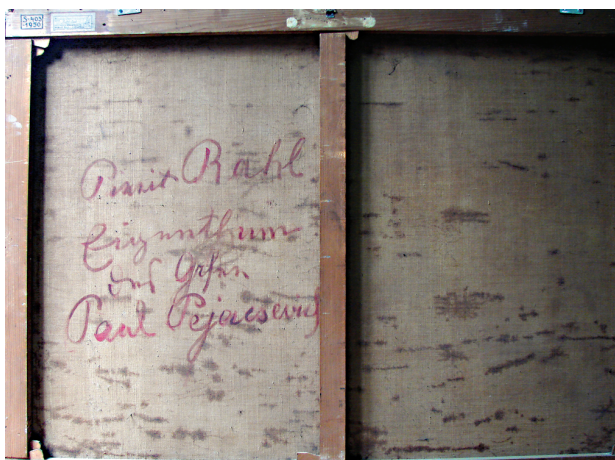 S-409
1950
Pinxit Rahl
Eigenthum
des Grfen
Paul Pejacsevich